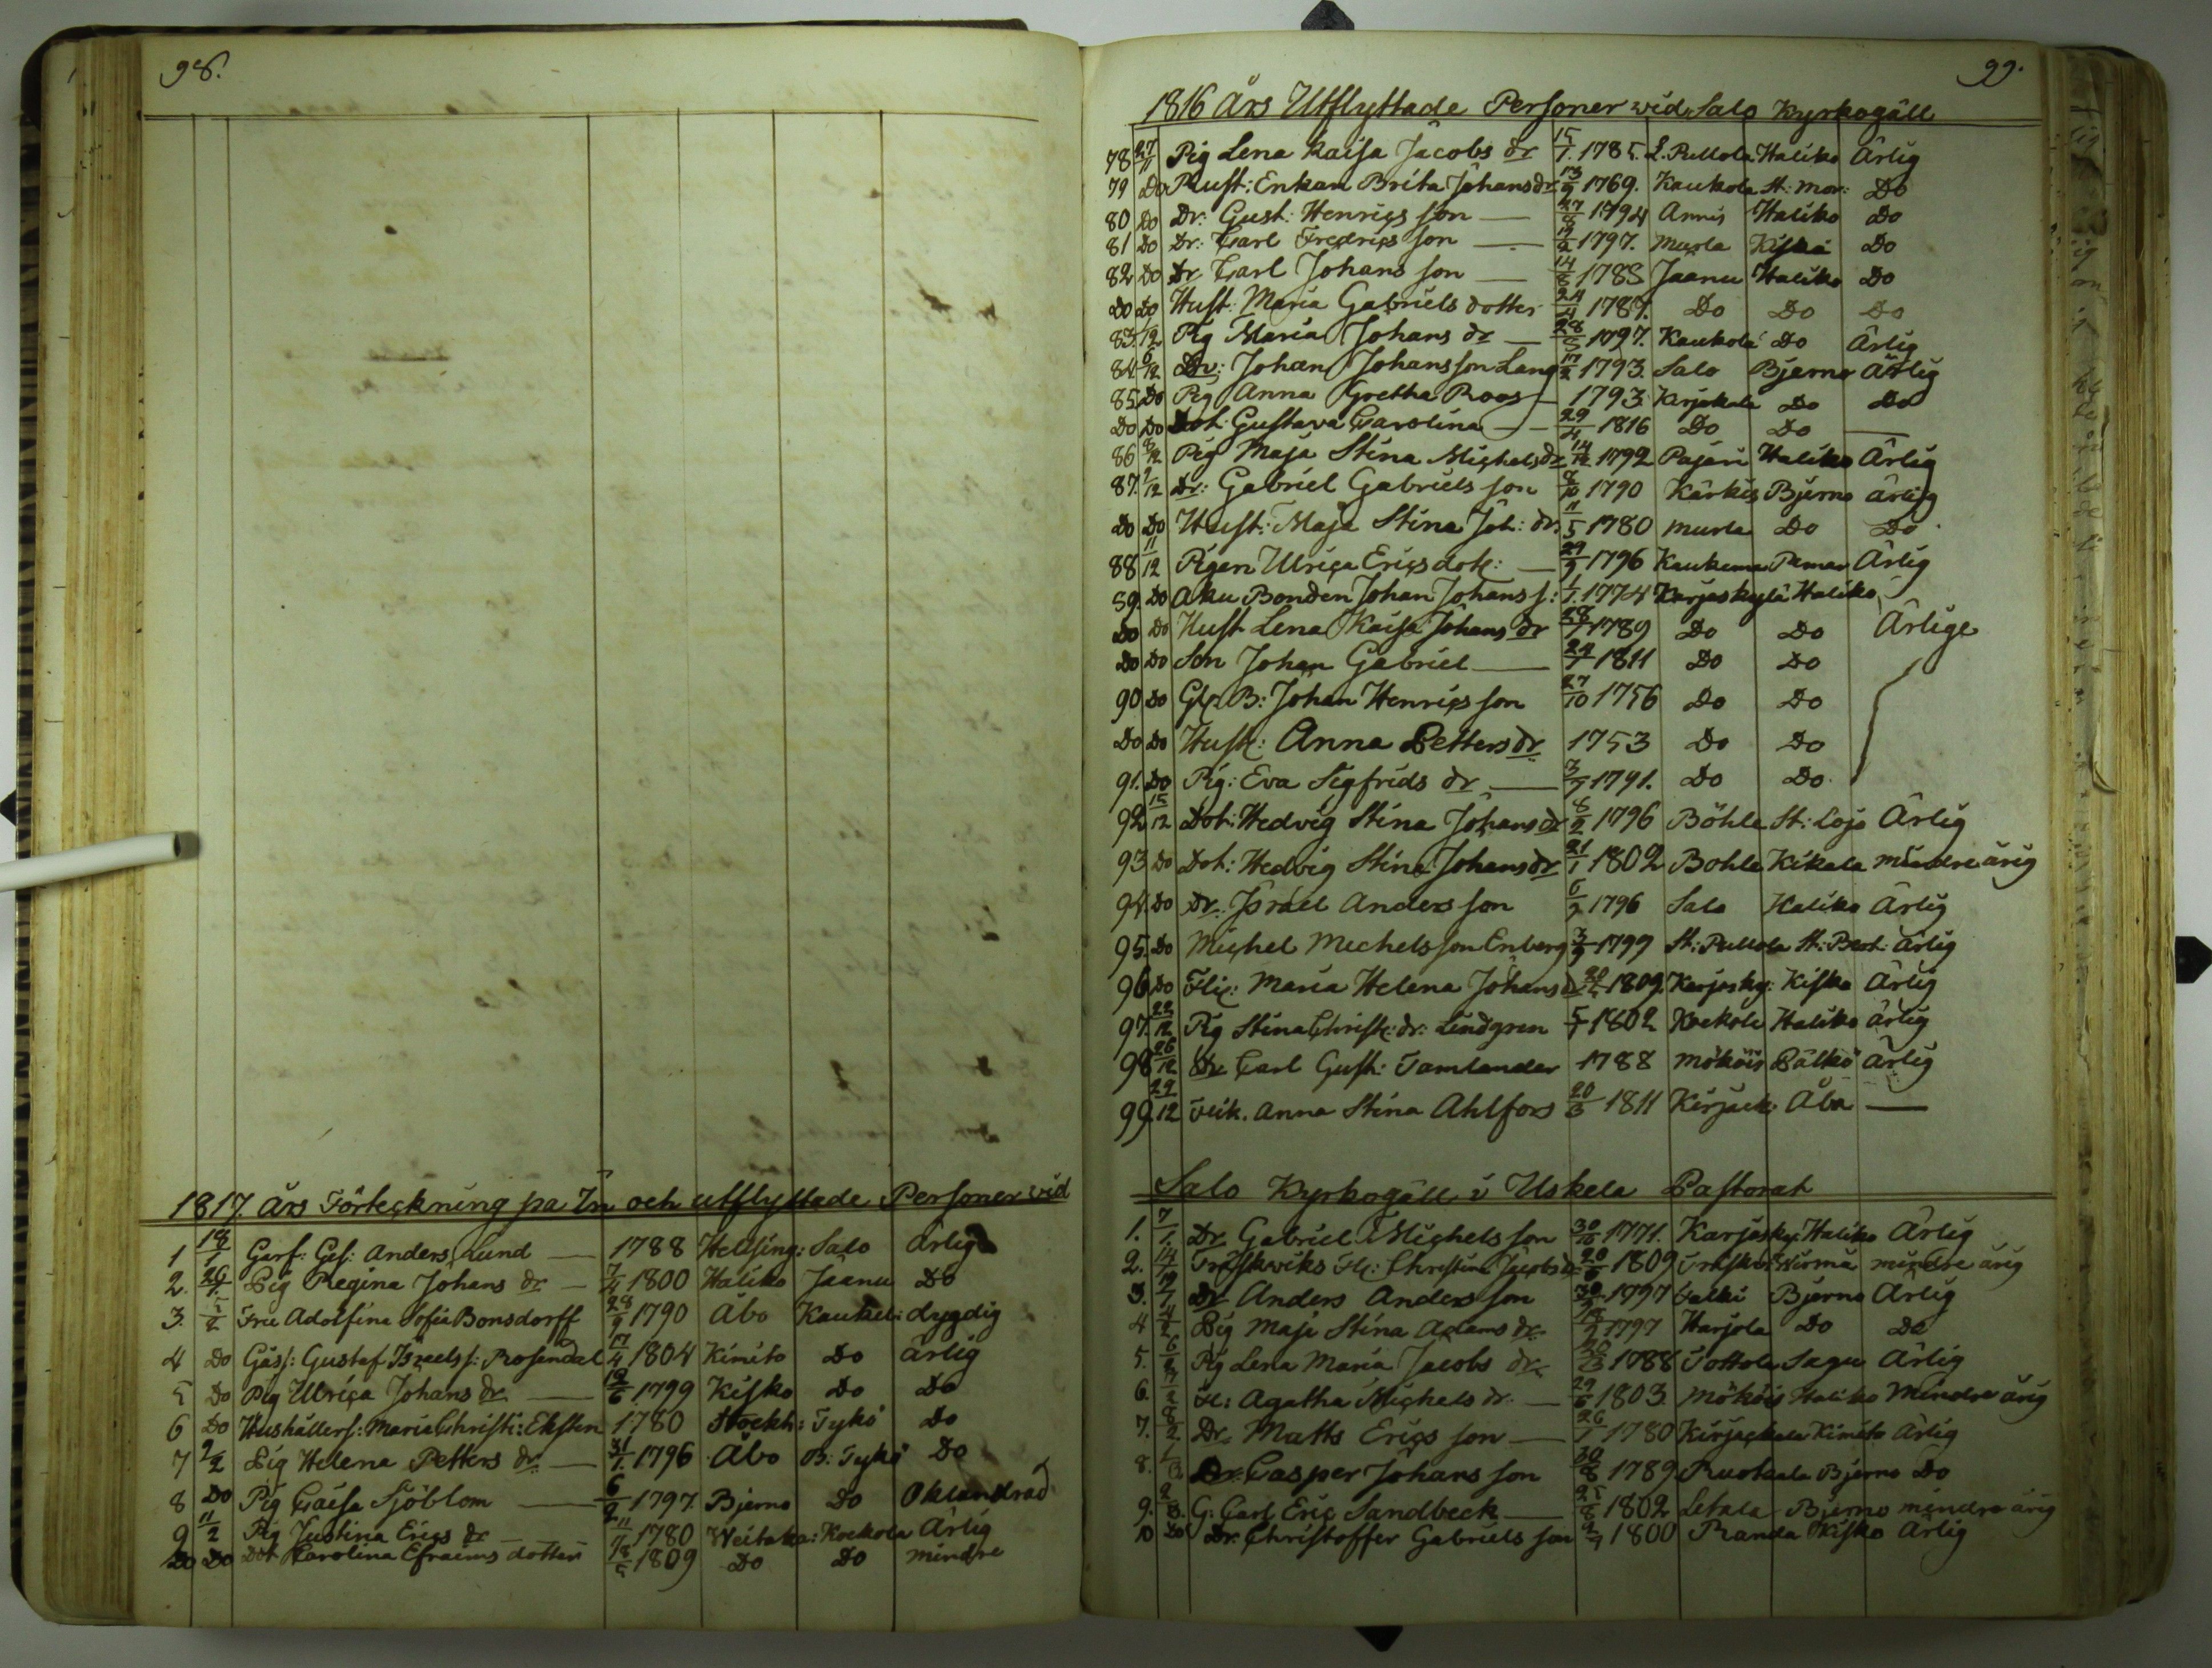 98.
1817 års Förteckning på In och utflyttade Personer wid
1 18/1 Garf: Ges: Anders Lund — 1788 Helsing: Salo ärlig
2. 26/1 Pig Regina Johans dr — 7/4 1800 Haliko Jäanu Do
3. 5/2 Fru Adolfina Sofia Bonsdorff 28/9 1790 Åbo Kaukel: dygdig
4 Do Gäss: Gustaf Israels s: Rosendal 17/4 1804 Kimito Do ärlig
5 Do Pig Ulrica Johans dr — 1799 Kisko Do Do
6 Do Hushållers: Maria Christi: Eksten 1780 Stockh: Tykö Do
7 9/2 Pig Helena Petters dr — 31/1 1796 Åbo B: Tykö Do
8 Do Pig Caisa Sjöblom — 6/2 1797. Bjerno Do Oklandrad
9 11/2 Pig Justina Erics dr — 11/11 1780 Koekola Ärlig
Do Do Dot Carolina Efraims dotter 18/5 1809 Do Do mindre
99.
1816 Års Utflyttade Personer wid Salo Kyrkogäll
78 27/11 Pig Lena Kaisa Jacobs dr 15/1. 1785. L. Pullola Haliko Ärlig
79 Do Rust: Enkan Brita Johans dr 13/9 1769. Kaukola St: Mar: Do
80 Do Dr: Gust: Henrics son — 27/8 1794 Annis Haliko Do
81 Do Dr: Carl Fredrics son — 1797. Murla Kisko Do
82 Do Dr Carl Johans son — 14/8 1783 Jäanu Haliko Do
Do Do Hust: Maria Gabriels dotter 24/4 1787. Do Do Do
83. 1/12 Pig Maria Johans dr — 28/5 1797. Kaukola Do Ärlig
84 6/12 Dr: Johan Johansson Lang 17/2 1793. Salo Bjerno Ärlig
85. Do Pig Anna Gretha Roos — 1793 Kirjakala Do Do
Do Do Dot: Gustava Carolina — 29/4 1816 Do Do —
86 8/12 Pig Maja Stina Michels dr 14/12 1792 Pajari Haliko Ärlig
87. 9/12 Dr: Gabriel Gabriels son 8/10 1790 Kärkis Bjerno ärlig
Do Do Hust: Maja Stina Joh: dr. 11/5 1780 Murla Do Do
88 11/12 Pigan Ulrica Erics dot: — 29/9 1796 Kaukema Pemar Ärlig
89. Do Aku Bonden Johan Johans s: 1/1. 1774 Karjaskylä Haliko
Do Do Hust Lena Kaisa Johans dr 28/1 1789 Do Do Ärlige
Do Do Son Johan Gabriel — 24/1 1811 Do Do
90 Do Gl: B: Johan Henrics son 27/10 1756 Do Do
Do Do Hust: Anna Petters dr 1753 Do Do
91. Do Pig: Eva Sigfrids dr — 1791. Do Do
92 15/12 Dot: Hedvig Stina Johans dr 8/2 1796 Böhle St: Lojo Ärlig
93 Do Dot: Hedvig Stina Johans dr 21/1 1802 Bohle Kikala mindre årig
94. Do Dr: Israel Anders son 6/2 1796 Salo Haliko Ärlig
95. Do Michel Michelsson Enberg 3/9 1799 St: Pullola ärlig
96. Do Flic: Maria Helena Johans d: 1809. Karjasky: Kisko Ärlig
97. 22/12 Pig Stina Christ: dr: Lindgren 5/7 1802 Koekola Haliko ärlig
98 26/12 Dr Carl Gust: Tamlander 1788 Mököis Pälkö ärlig
99. 29/12 Flik. Anna Stina Ahlfors 20/3 1811 Kirjack: Åbo —
Salo Kyrkogäll i Uskela Pastorat
1. 7/1. Dr Gabriel Michels son 30/10 1771. Karjasky: Haliko Ärlig
2. 14/1 Träskwiks Fl: Christina Jacobs d 1809 mindre årig
3. 19/1 Dr Anders Anders son 1797 Bjerno Ärlig
4 Pig Maja Stina Adams dr 1797 Harjola Do Do
5. 6/2 Pig Lena Maria Jacobs dr 1788 Tottola Sagu Ärlig
6. Fl: Agatha Michels dr — 29/6 1803. Mököis Haliko Mindre årig
7. 8/2 Dr. Matts Erics son — 26/1 1780 Kirjackala Kimito Ärlig
8. 1/3 Dr: Casper Johans son 30/8 1789 Ruotsala Bjerno Do
9. 2/3. G: Carl Eric Sandbeck — 25/8 1802 Letala Bjerno mindre årig
10 Do Dr. Christoffer Gabriels son 1800 Randa Kisko Ärlig